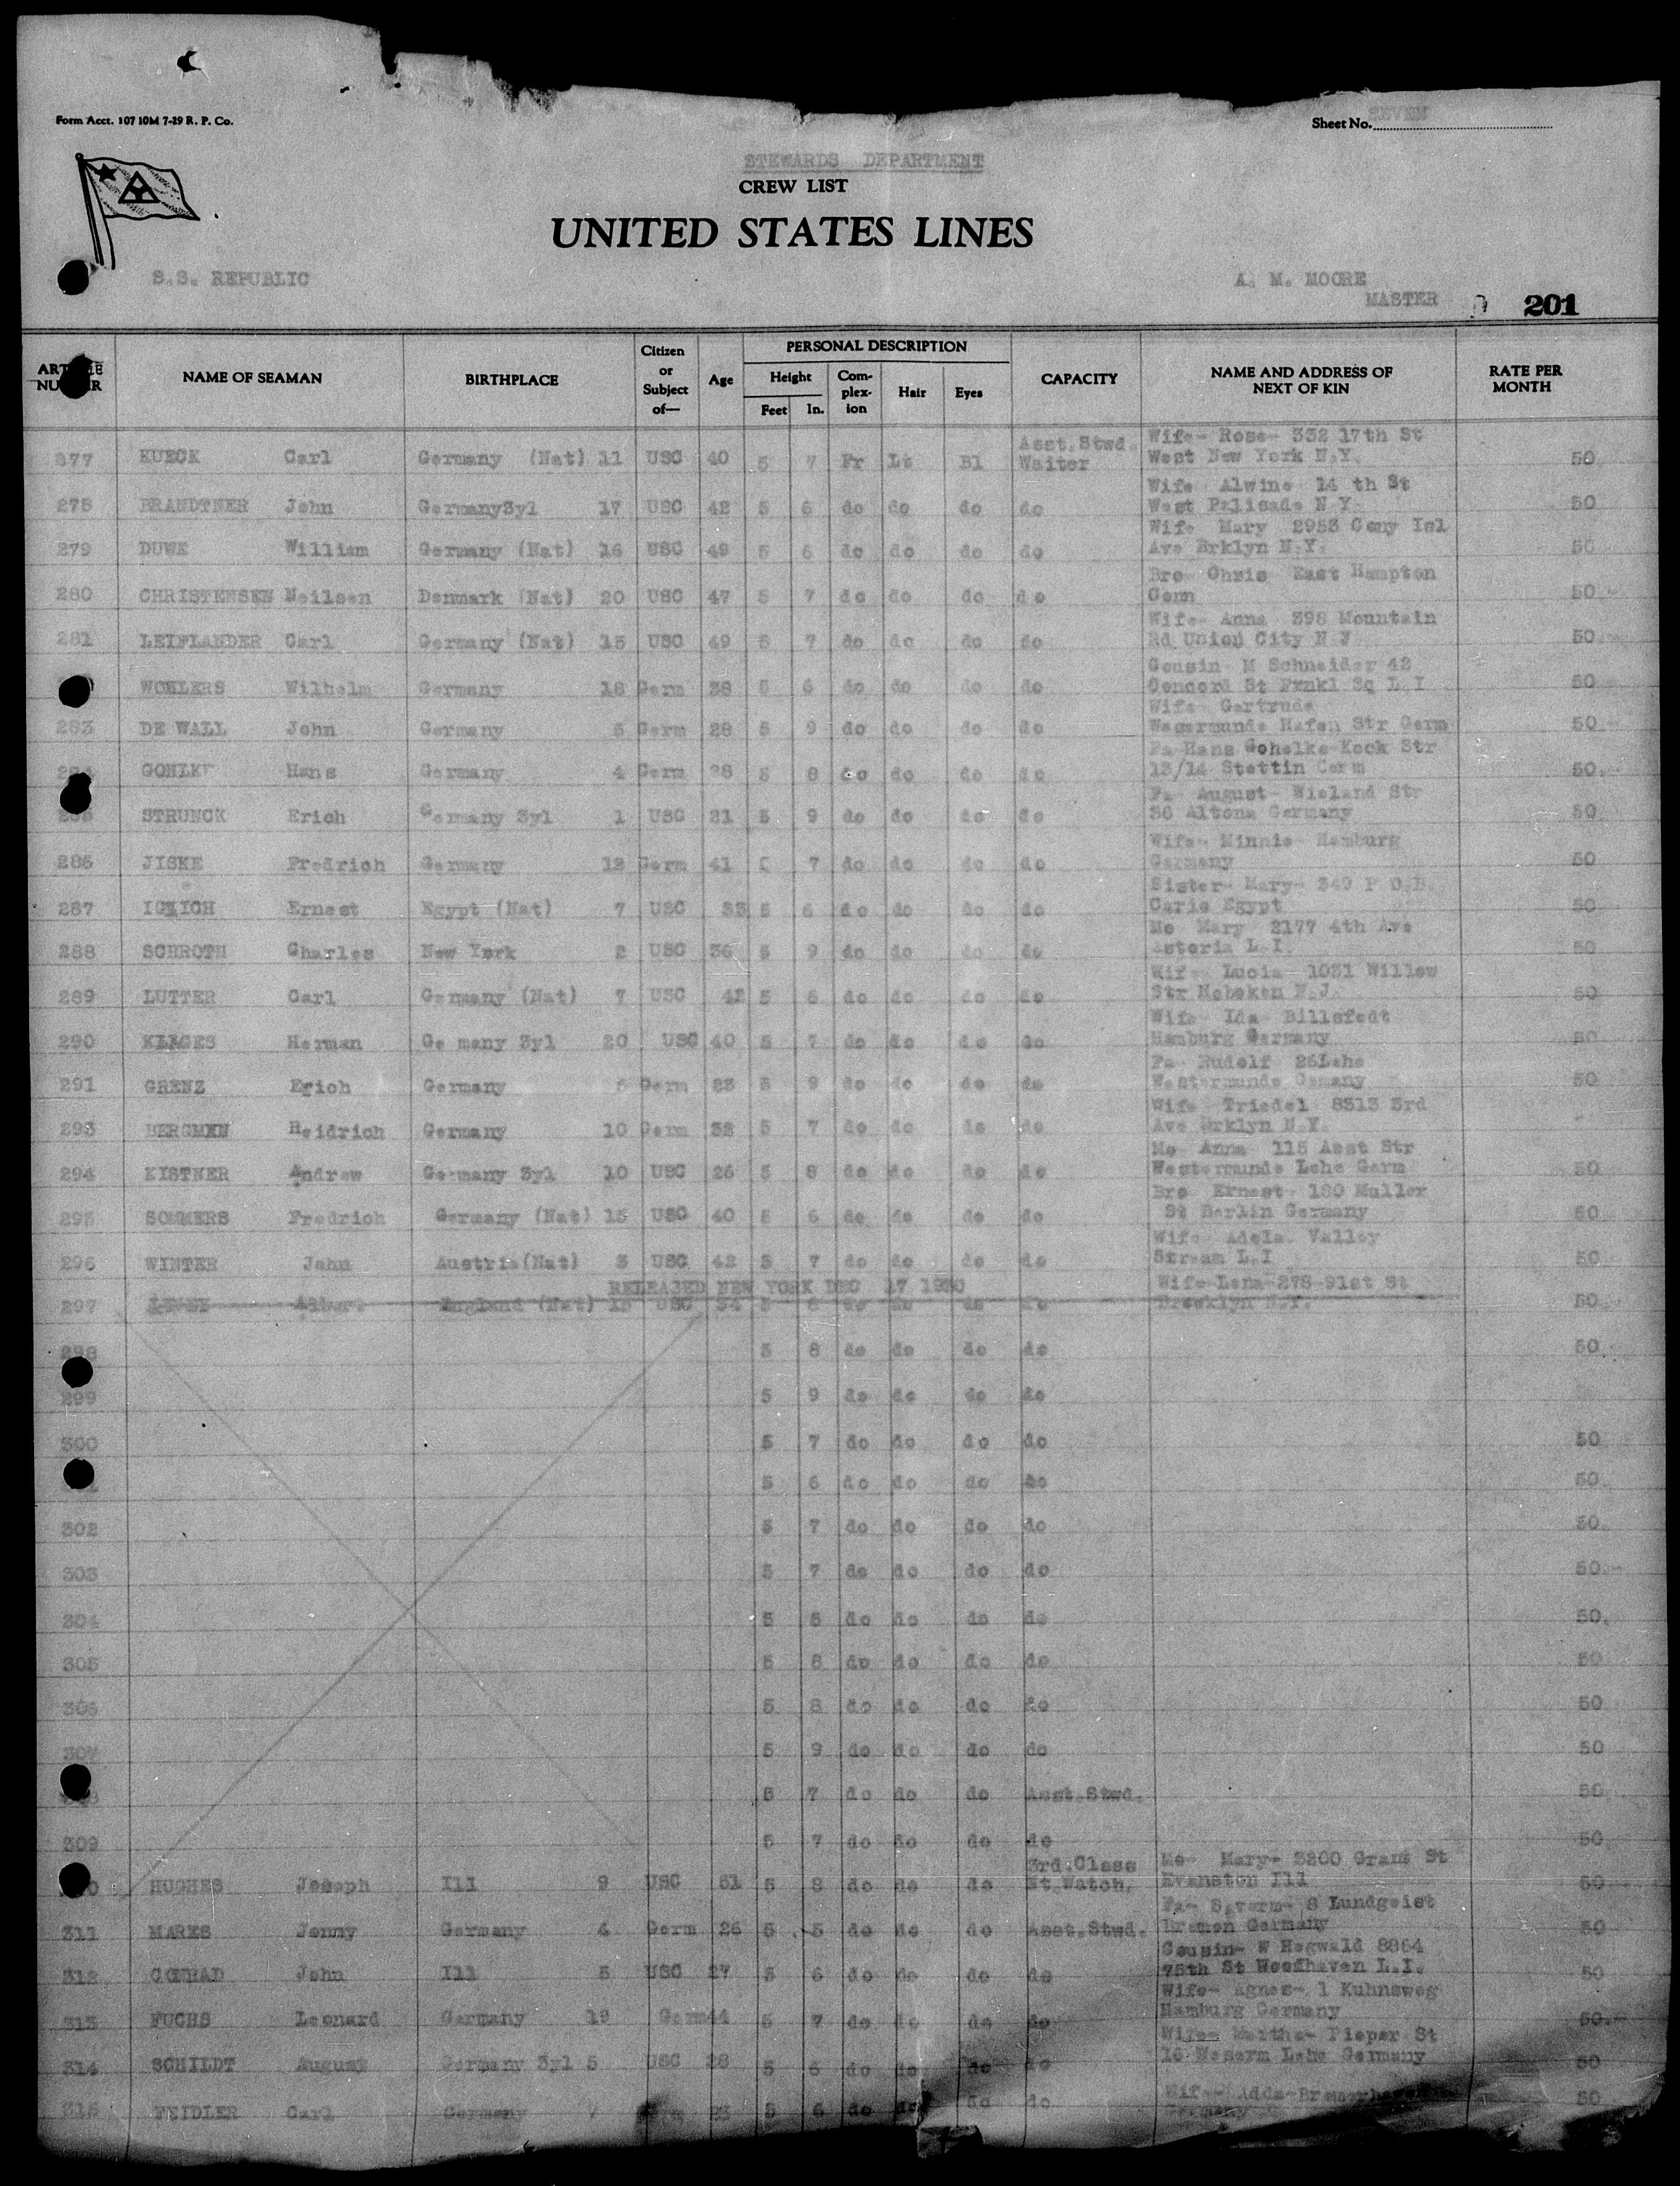 Form Acct. 107 10M 7-29 R. P. Co.
Sheet No. SEVEN
STEWARDS DEPARTMENT
CREW LIST
UNITED STATES LINES
S.S. REPUBLIC
A. M. MOORE
MASTER
201
NUMBER NAME OF SEAMAN BIRTHPLACE Citizen or Subject of— Age PERSONAL DESCRIPTION Height Feet In. Com- plex- ion Hair Eyes CAPACITY NAME AND ADDRESS OF NEXT OF KIN RATE PER MONTH
Asst.Stwd. Wife- Rose- 332 17th St
277 KUECK Carl Germany (Nat) 11 USC 40 5 7 Fr Lt Bl Waiter West New York N.Y. 50
Wife Alwine 14 th St
278 BRANDTNER John Germany3yl 17 USC 42 5 6 do do do do West Palisade N Y 50
Wife Mary 2953 Cony Isl
279 DUWE William Germany (Nat) 16 USC 49 5 6 do do do do Ave Brklyn N.Y. 50
Bro Chris East Hampton
280 CHRISTENSEN Neilsen Denmark (Nat) 20 USC 47 5 7 do do do do Conn 50
Wife- Anna 398 Mountain
281 LEIFLANDER Carl Germany (Nat) 15 USC 49 5 7 do do do do Rd Union City N J 50
Cousin M Schneider 42
WOHLERS Wilhelm Germany 18 Germ 38 5 6 do do do do Concord St Frnkl Sq L I 50
Wife Gertrude
283 DE WALL John Germany 5 Germ 28 5 9 do do do do Wesermunde Hafen Str Germ 50
Fa Hans Gohelke Kock Str
284 GOHLKE Hans Germany 4 Germ 28 5 8 do do do do 13/14 Stettin Germ 50
Fa August- Wieland Str
285 STRUNCK Erich Germany 3yl 1 USC 21 5 9 do do do do 36 Altona Germany 50
Wife- Minnie- Hamburg
286 JISKE Fredrich Germany 12 Germ 41 7 do do do do Germany 50
Sister- Mary- 349 P O.B.
287 Ernest Egypt (Nat) 7 USC 33 5 6 do do do do Carie Egypt 50
Mo Mary 2177 4th Ave
288 SCHROTH Charles New York 2 USC 36 5 9 do do do do Astoria L.I. 50
Wife Lucia 1031 Willow
289 LUTTER Carl Germany (Nat) 7 USC 42 5 6 do do do do Str Hoboken N.J. 50
Wife Ida Billsfedt
290 KLAGES Herman Ge many 3yl 20 USC 40 5 7 do do do do Hamburg Germany 50
Fa Rudolf 26Lehe
291 GRENZ Erich Germany 5 Germ 23 5 9 do do do do Westermunde Gemany 50
Wife Triedel 8313 3rd
293 BERGMEN Heidrich Germany 10 Germ 32 5 7 do do do do Ave Brklyn N.Y.
Mo Anna 115 Aest Str
294 KISTNER Andrew Germany 3yl 10 USC 26 5 8 do do do do Westermunde Lehe Germ 50
Bro Ernest- 180 Muller
295 SOMMERS Fredrich Germany (Nat) 15 USC 40 5 6 do do do do St Berlin Germany 50
Wife Adela. Valley
296 WINTER John Austria(Nat) 3 USC 42 5 7 do do do do Stream L.I 50
RELEASED NEW YORK DEC 17 1930 Wife-Lena-278-91st St
297 England (Nat) 15 USC 34 5 8 do do do do Brooklyn N.Y. 50
298 5 8 do do do do 50
299 5 9 do do do do
300 5 7 do do do do 50
5 6 do do do do 50
302 5 7 do do do do 50
303 5 7 do do do do 50
304 5 6 do do do do 50
305 5 8 do do do do 50
306 5 8 do do do do 50
307 5 9 do do do do 50
5 7 do do do Asst.Stwd. 50
309 5 7 do do do do 50
3rd.Class Mo- Mary- 3200 Grant St
HUGHES Joseph Ill 9 USC 51 5 8 do do do Nt.Watch. Evanston Ill 50
Fa- 8 Lundgeist
311 MARKS Jonny Germany 4 Germ 26 5 5 do do do Asst.Stwd. Bremen Germany 50
Cousin- W Hegwald 8864
312 CONRAD John Ill 5 USC 27 5 6 do do do do 75th St Woodhaven L.I. 50
Wife- Agnes- 1 Kuhnsweg
313 FUCHS Leonard Germany 19 Germ44 5 7 do do do do Hamburg Germany 50
Wife- Martha- Pieper St
314 SCHILDT August Germany 3yl 5 USC 28 5 6 do do do do 16 Weserm Lehe Germany 50
Wife- Adda-
315 FEIDLER Carl Germany 7 23 5 6 do do do do Germany 50